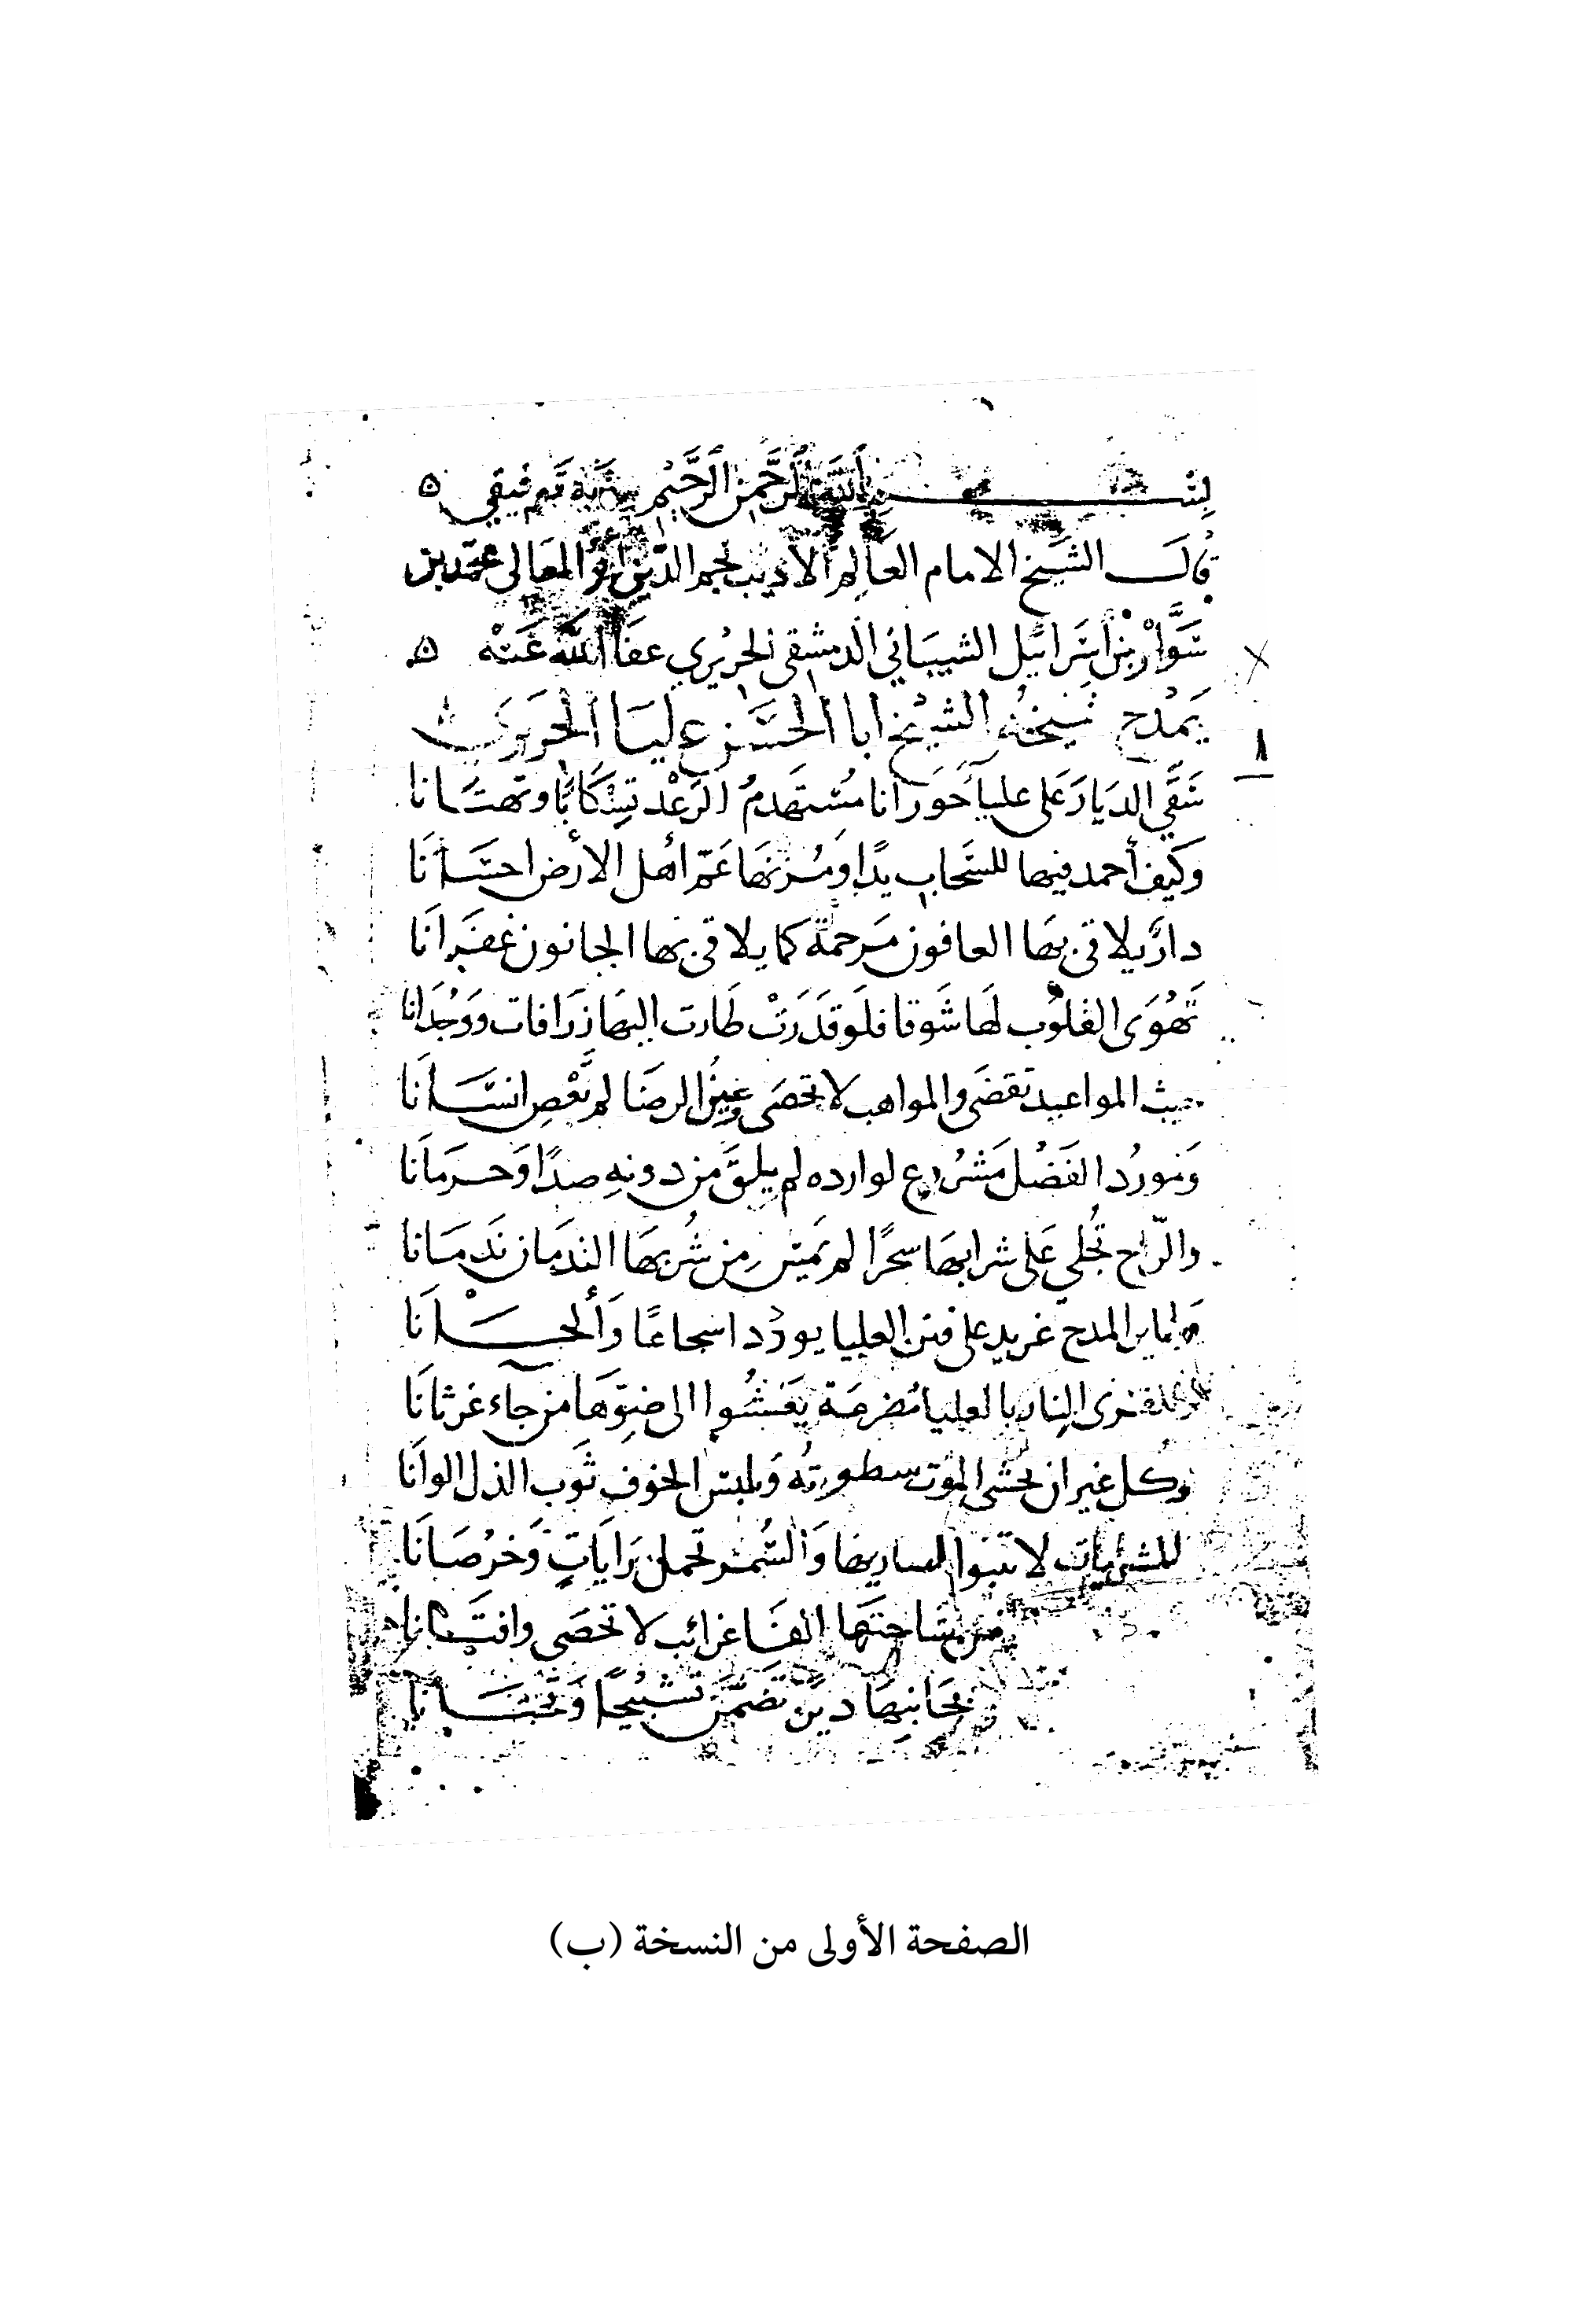 بسم الله الرحمن الرحيم وبه توفيقي
قال الشيخ الامام العالم الأديب نجم الدين ابو المعالي محمد بن
سَوَّار بن اسرائيل الشيباني الدمشقي الحريري عفا الله عنه
يمدح شيخه الشيخ ابا الحسن عليا الحريري
١
سَقَّى الديار على علياء حَورانا مُستهدمُ الرعْد تسكابًا وتهتانا
وكيف أحمد فيها للسحاب يدًا ومُزنها عمّ اهل الأرض احسانَا
دارٌ يلاقي بها العافون مَرحمة كما يلاقي بها الجانون غفرانَا
تهوَى القلوب لها شَوقا فلو قدَرَتْ طارت اليها زرافات ووُجدانا
حيث المواعيد تقضَى والمواهب لا تحصَى وعين الرضَا لم تَعْصِ انسانَا
وَمورُد الفَضْل مَشرُوع لوارده لم يلقَ من دونهِ صدًا وَحرمانَا
والرّاح تُجلي عَلى شرابها سحرًا لم يَمْس مِن شُربها الندمان نَدمَانا
المدح غريد على فنن العليا يورد اسجاعًا وَألحانَا
النار بالعليا مُضرمَة يَعشُوا الى ضوّهَا من جاء غرثانَا
وكل غيران يخشى الموت سطوتهُ ويلبس الخوف ثَوب الذل الوانَا
للمشرفيات لا تنبوا مضاربها وَالسُّمْر تحملن رَاياتٍ وَخرُصَانَا
ساحتها الفَا غرائب لا تحصَى وافتَنانا
بجانبها دينٌ تَضَمَّنَ تسْبيْحًا وَتبيَانا
الصفحة الأولى من النسخة (ب)